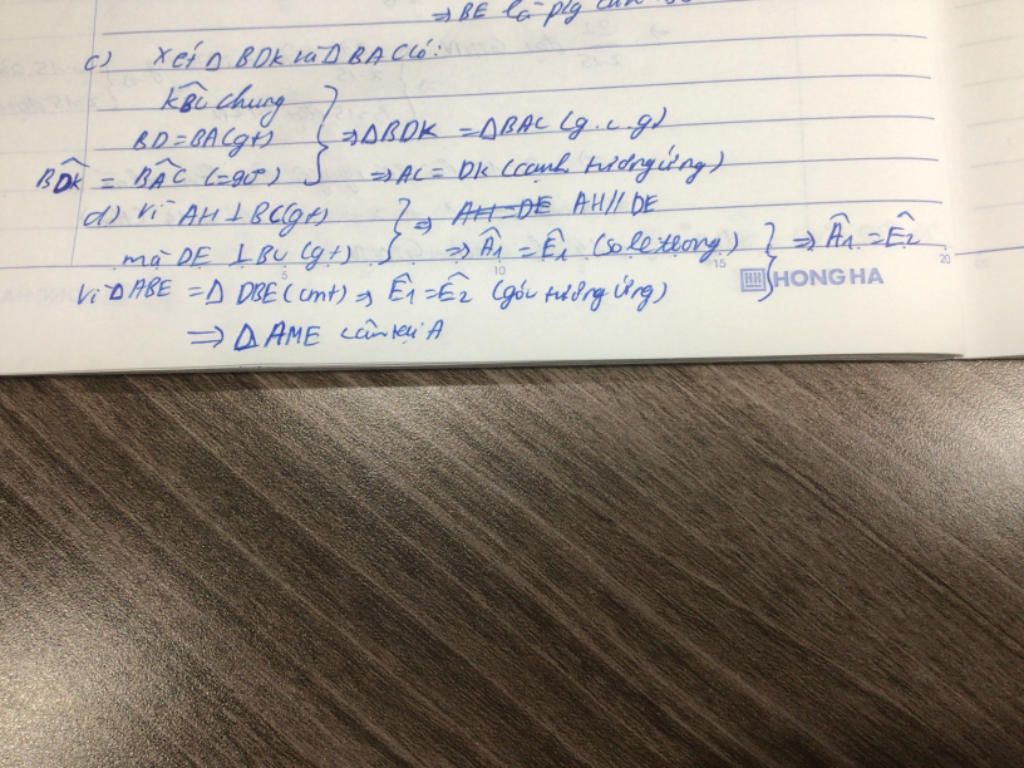 ⇒ BE là plg
c) Xét Δ BDK và Δ BAC có:
K̂BC chung
BD = BA (gt) } ⇒ ΔBDK = ΔBAC (g.c.g)
BD̂K = BÂC (=90°) ⇒ AC = DK (cạnh tương ứng)
d) Vì AH ⊥ BC (gt) } ⇒ AH = DE AH // DE
mà DE ⊥ BC (gt) ⇒ Â1 = Ê1 (so le trong) } ⇒ Â1 = Ê2
Vì Δ ABE = Δ DBE (cmt) ⇒ Ê1 = Ê2 (góc tương ứng)
⇒ Δ AME cân tại A
5 10 15 20
HONG HA